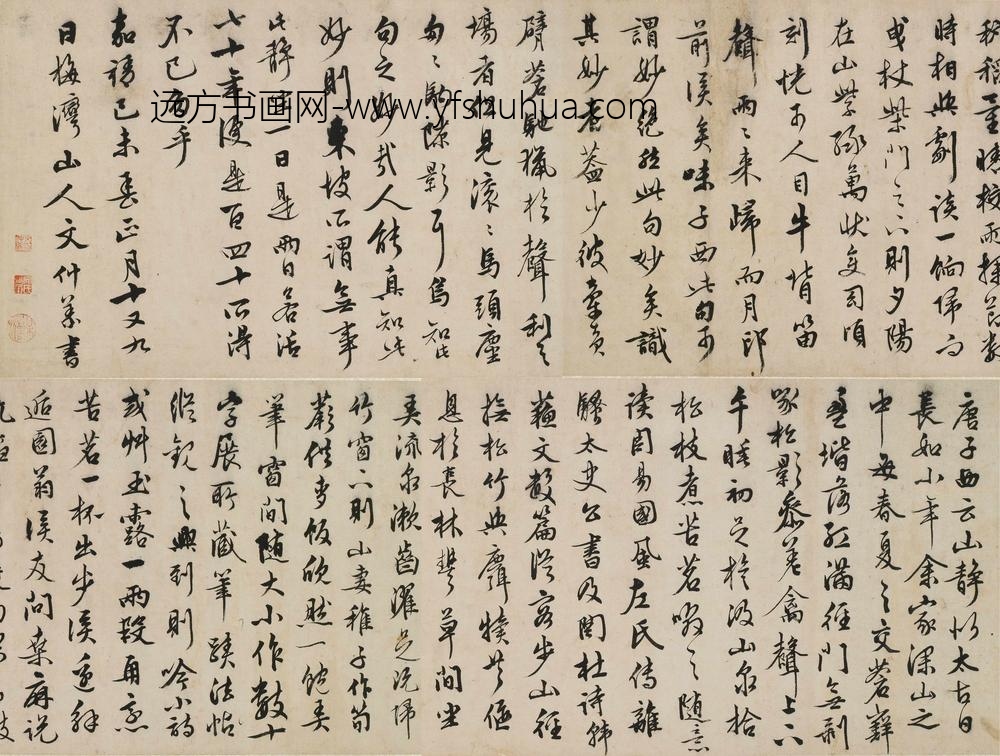 秔稻量晴校雨探節數
時相與劇談一餉歸而
曳杖柴門之下則夕陽
在山紫綠萬狀變幻頃
刻恍可人目牛背笛
聲兩〻來歸而月印
前溪矣味子西此句可
謂妙絕然此句妙矣識
其妙者蓋少彼牽黃
臂蒼馳獵於聲利之
場者但見滾〻馬頭塵
匆〻駒隙影耳烏知此
句之妙哉人能真知此
妙則東坡所謂無事
此靜坐一日是兩日若活
七十年便是百四十所得
不已多乎
嘉靖己未春正月十又九
日梅灣山人文仲義書
远方书画网-www.yfshuhua.com
唐子西云山靜似太古日
長如小年余家深山之
中每春夏之交蒼蘚
盈堦落花滿徑門無剥
啄松影參差禽聲上下
午睡初足旋汲山泉拾
松枝煮苦茗啜之隨意
读周易國風左氏傳離
騷太史公書及陶杜詩韩
蘇文數篇從容步山徑
撫松竹與麛犢共偃
息於長林豐草間坐
弄流泉漱齒濯足既歸
竹窗下則山妻稚子作筍
蕨供麥飯欣然一飽弄
筆窗間隨大小作數十
字展所藏筆蹟法帖
縱觀之興到則吟小詩
或艸玉露一兩段再烹
苦茗一杯出步溪邊解
逅園翁溪友問桑麻說